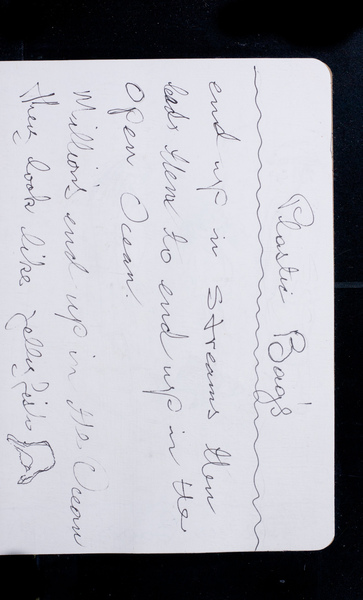 Plastic Bag's
end up in streams then
leads them to end up in the
open Ocean.
Million's end up in the Ocean
they look like Jelly Fish